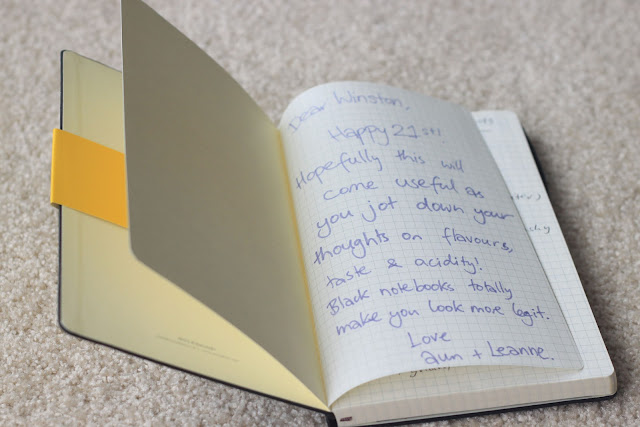 Dear Winston,
Happy 21st!
Hopefully this will
come useful as
you jot down your
thoughts on flavours,
taste & acidity!
Black notebooks totally
make you look more legit.
Love
Aun + Leanne.